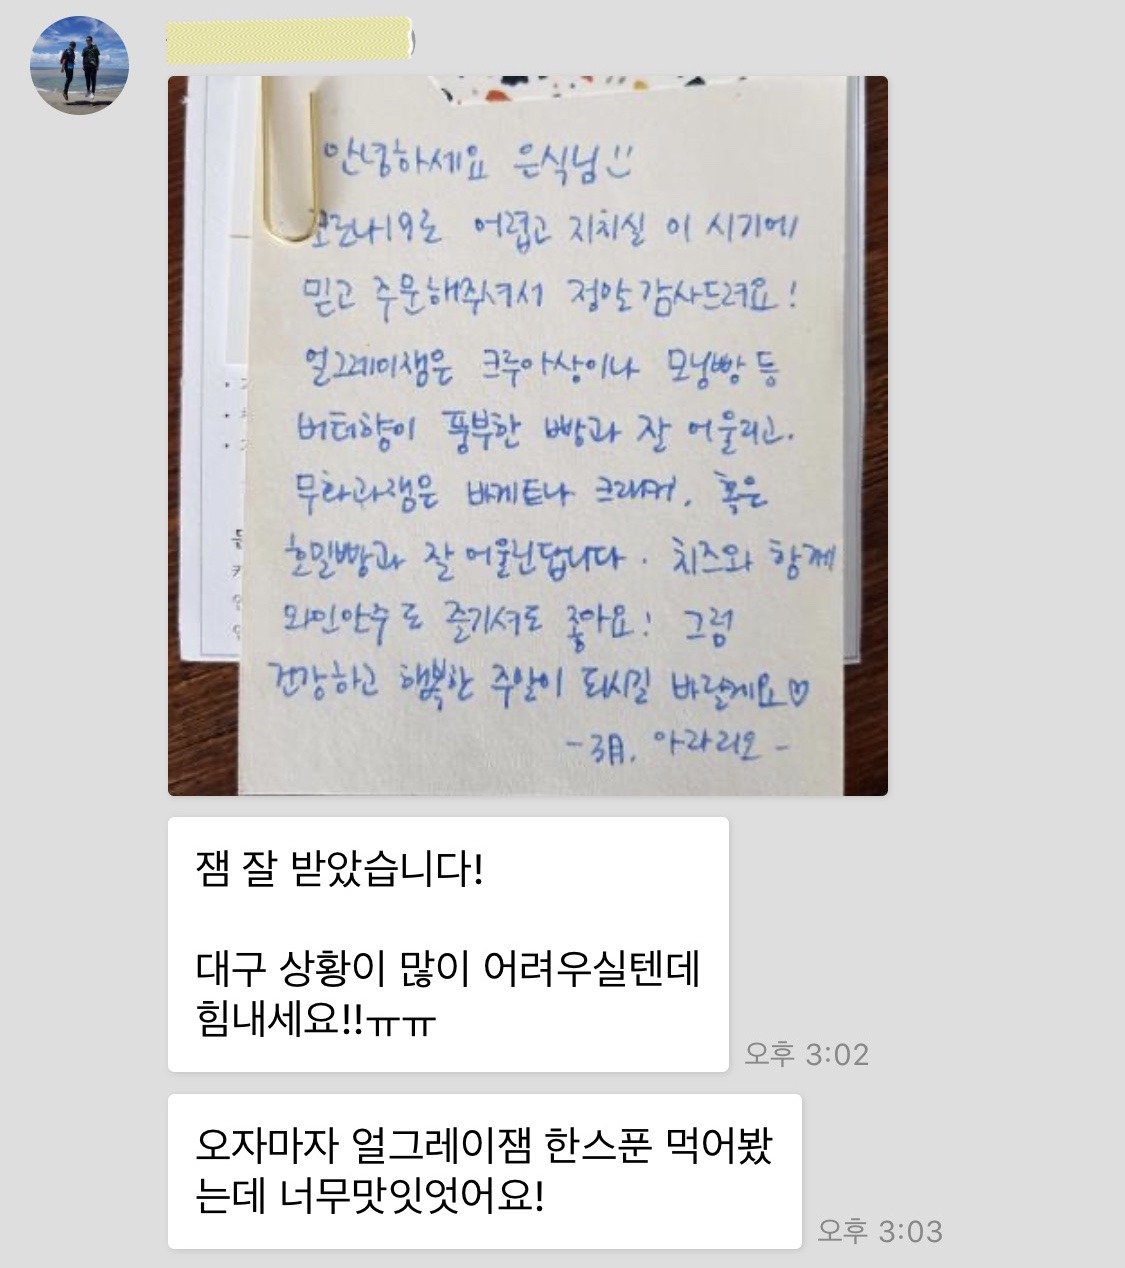 안녕하세요 은식님
코로나19로 어렵고 지치실 이 시기에
믿고 주문해주셔서 정말 감사드려요!
얼그레이잼은 크루아상이나 모닝빵 등
버터향이 풍부한 빵과 잘 어울리고.
무화과잼은 바게트나 크래커, 혹은
호밀빵과 잘 어울린답니다. 치즈와 함께
와인안주로 즐기셔도 좋아요! 그럼
건강하고 행복한 주말이 되시길 바랄게요♡
-3月. 아라리오-
잼 잘 받았습니다!
대구 상황이 많이 어려우실텐데
힘내세요!!ㅠㅠ
오후 3:02
오자마자 얼그레이잼 한스푼 먹어봤
는데 너무맛잇엇어요!
오후 3:03